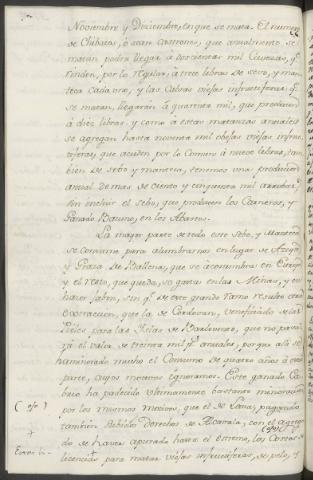 Noviembre y Diciembre, en que se mata. El numero
de Chibatos, ò sean Castrones, que anualmente se
matan podrá llegar à doscientas mil Cavezas, q.e
rinden, por lo regular, à tres libras de sevo, y man-
teca cada uno, y las Cabras viejas infructiferas q.e
se matan, llegarán à quarenta mil, que producen
à diez libras, y como à estas matanzas anuales
se agregan hasta noventa mil obejas viejas infruc-
tiferas, que acuden por lo comun à nueve libras, tam-
bien de sebo y manteca, tenemos una produccion
anual de mas de ciento y cinquenta mil arrobas,
sin incluir el sebo, que producen los Carneros, y
Ganado Bacuno, en los Abastos.
La mayor parte de todo este Sebo, y Manteca
se consume para alumbrarnos en lugar de Azeyte,
y Grasa de Ballena, que se acostumbra en Europa
y el resto, que queda, se gasta en las Minas, y en
hacer jabon, sin q.e de este grande Ramo resulte otra
extraccion, que la de Cordovan, beneficiado de las
Pieles para las Islas de Barlovento, que no pasa-
rá el valor de treinta mil p.s anuales, porque allá se
ha minorado mucho el Consumo de quatro años à esta
parte, cuyos motivos ignoramos. Este ganado Ca-
brio ha padecido ultimamente bastante minoracion
(ojo) por los mismos motivos, que el de Lana, pagando
+ tambien debidos derechos de Alcavala, con el agrega-
do de haver apurado hasta el extremo, los Cortos de
licencias para matar viejas infructiferas, de pelo, y